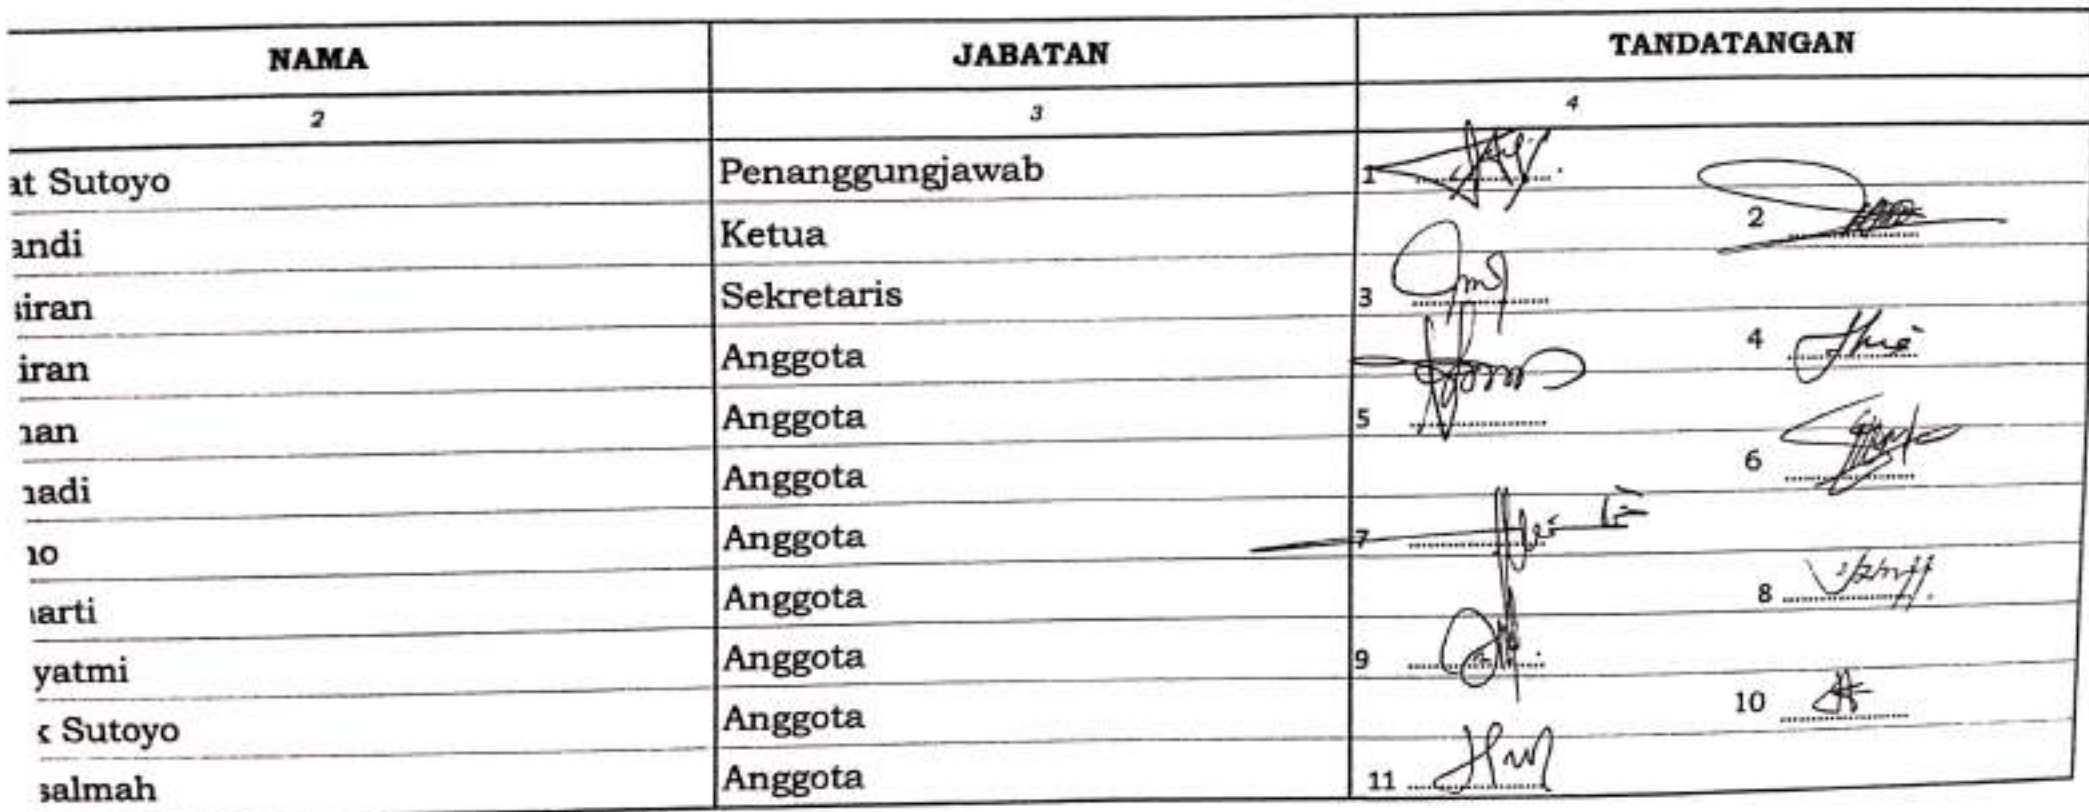 NAMA JABATAN TANDATANGAN
2 3 4
at Sutoyo Penanggungjawab 1
andi Ketua 2
iran Sekretaris 3
iran Anggota 4
nan Anggota 5
nadi Anggota 6
no Anggota 7
arti Anggota 8
yatmi Anggota 9
Sutoyo Anggota 10
salmah Anggota 11